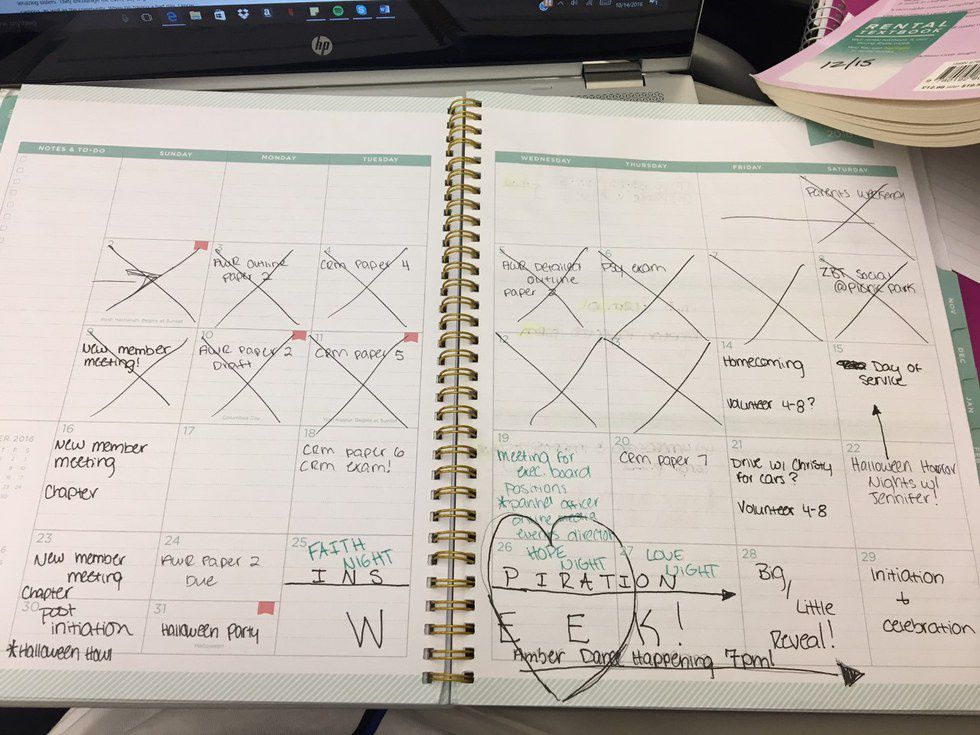 10/14/2016
hp
RENTAL
TEXTBOOK
12/15
NOTES & TO-DO
SUNDAY
MONDAY
TUESDAY
WEDNESDAY
THURSDAY
FRIDAY
SATURDAY
Parents Weekend
2
Rosh Hashanah Begins at Sunset
3
AWR outline
paper 2
4
Crm paper 4
AWR Detailed
outline
paper 2
6
Psy exam
7
8
ZBT Social
@Picnic Park
9
New member
meeting!
10
AWR paper 2
Draft
Columbus Day
11
Crm paper 5
Yom Kippur Begins at Sunset
12
13
14
Homecoming
Volunteer 4-8?
15
Day of
service
16
New member
meeting
Chapter
17
18
Crm paper 6
Crm exam!
19
Meeting for
exec. board
positions
*panhel officer
online media
events director
20
Crm paper 7
21
Drive w/ Christy
for cars?
Volunteer 4-8
22
Halloween Horror
Nights w/
Jennifer!
23
New member
meeting
Chapter
24
AWR Paper 2
Due
25
FAITH
NIGHT
INS
26
HOPE
NIGHT
27
LOVE
NIGHT
PIRATION
28
Big/
Little
Reveal!
29
initiation
+
celebration
30
post
initiation
*Halloween Howl
31
Halloween Party
Halloween
W
E E K!
Amber Dance Happening 7pm!
NOV
DEC
JAN